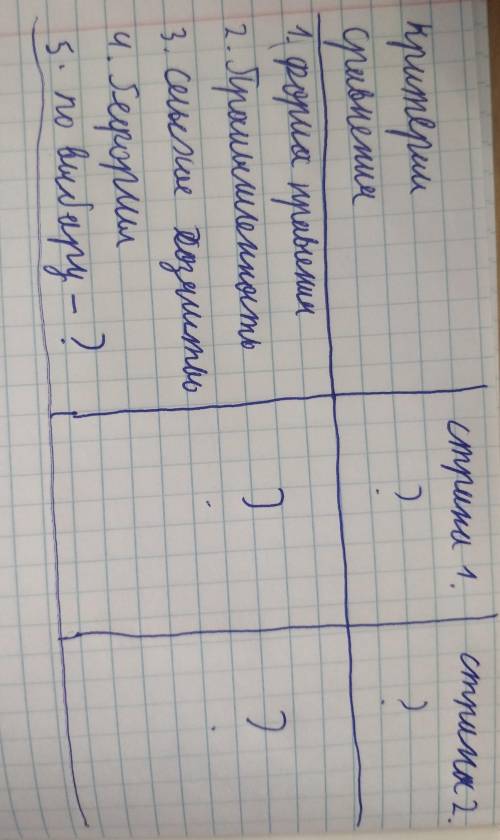 критерии сравнения
страна 1.
страна 2.
?
?
1. форма правления
2. Промышленность
3. сельское хозяйство
4. Реформы
5. по выбору - ?
?
?